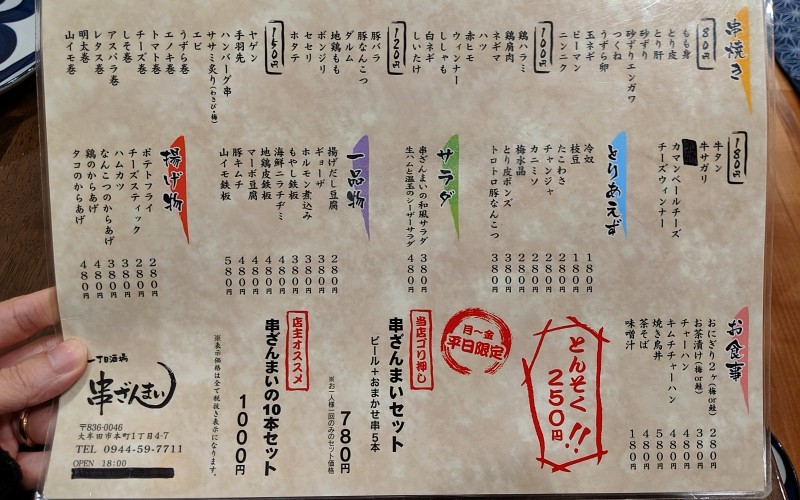 串焼き
80円
もも身
とり皮
とり肝
砂ずり
砂ずりエンガワ
つくね
うずら卵
玉ネギ
ピーマン
ニンニク
100円
鶏ハラミ
鶏肩肉
ネギマ
ハツ
赤ヒモ
ウィンナー
ししゃも
白ネギ
しいたけ
120円
豚バラ
豚なんこつ
ダルム
地鶏もも
ボンジリ
セセリ
ホタテ
150円
ヤゲン
手羽先
ハンバーグ串
ササミ炙り(わさび・梅)
エビ
うずら巻
エノキ巻
トマト巻
チーズ巻
しそ巻
アスパラ巻
レタス巻
明太巻
山イモ巻
180円
牛タン
牛サガリ
カマンベールチーズ
チーズウィンナー
とりあえず
冷奴 180円
枝豆 180円
たこわさ 280円
チャンジャ 280円
カニミソ 280円
梅水晶 280円
とり皮ポンズ 380円
トロトロ豚なんこつ 380円
サラダ
串ざんまいの和風サラダ 380円
生ハムと温玉のシーザーサラダ 480円
一品物
揚げだし豆腐 280円
ギョーザ 380円
ホルモン煮込み 380円
もやし鉄板 380円
海鮮ニラチヂミ 480円
地鶏皮鉄板 480円
マーボ豆腐 480円
豚キムチ 480円
山イモ鉄板 580円
揚げ物
ポテトフライ 280円
チーズスティック 280円
ハムカツ 380円
なんこつのからあげ 380円
鶏のからあげ 480円
タコのからあげ 480円
お食事
おにぎり2ヶ(梅or鮭) 280円
お茶漬け(梅or鮭) 380円
チャーハン 480円
キムチチャーハン 480円
焼き鳥丼 580円
茶そば 480円
味噌汁 180円
とんそく!!
250円
月〜金
平日限定
当店ゴリ押し
串ざんまいセット
ビール+おまかせ串5本
780円
※お一人様一回のみのセット価格
店主オススメ
串ざんまいの10本セット
1000円
※表示価格は全て税抜き表示になります。
一丁目酒場
串ざんまい
〒836-0046
大牟田市本町1丁目4-7
TEL 0944-59-7711
OPEN 18:00